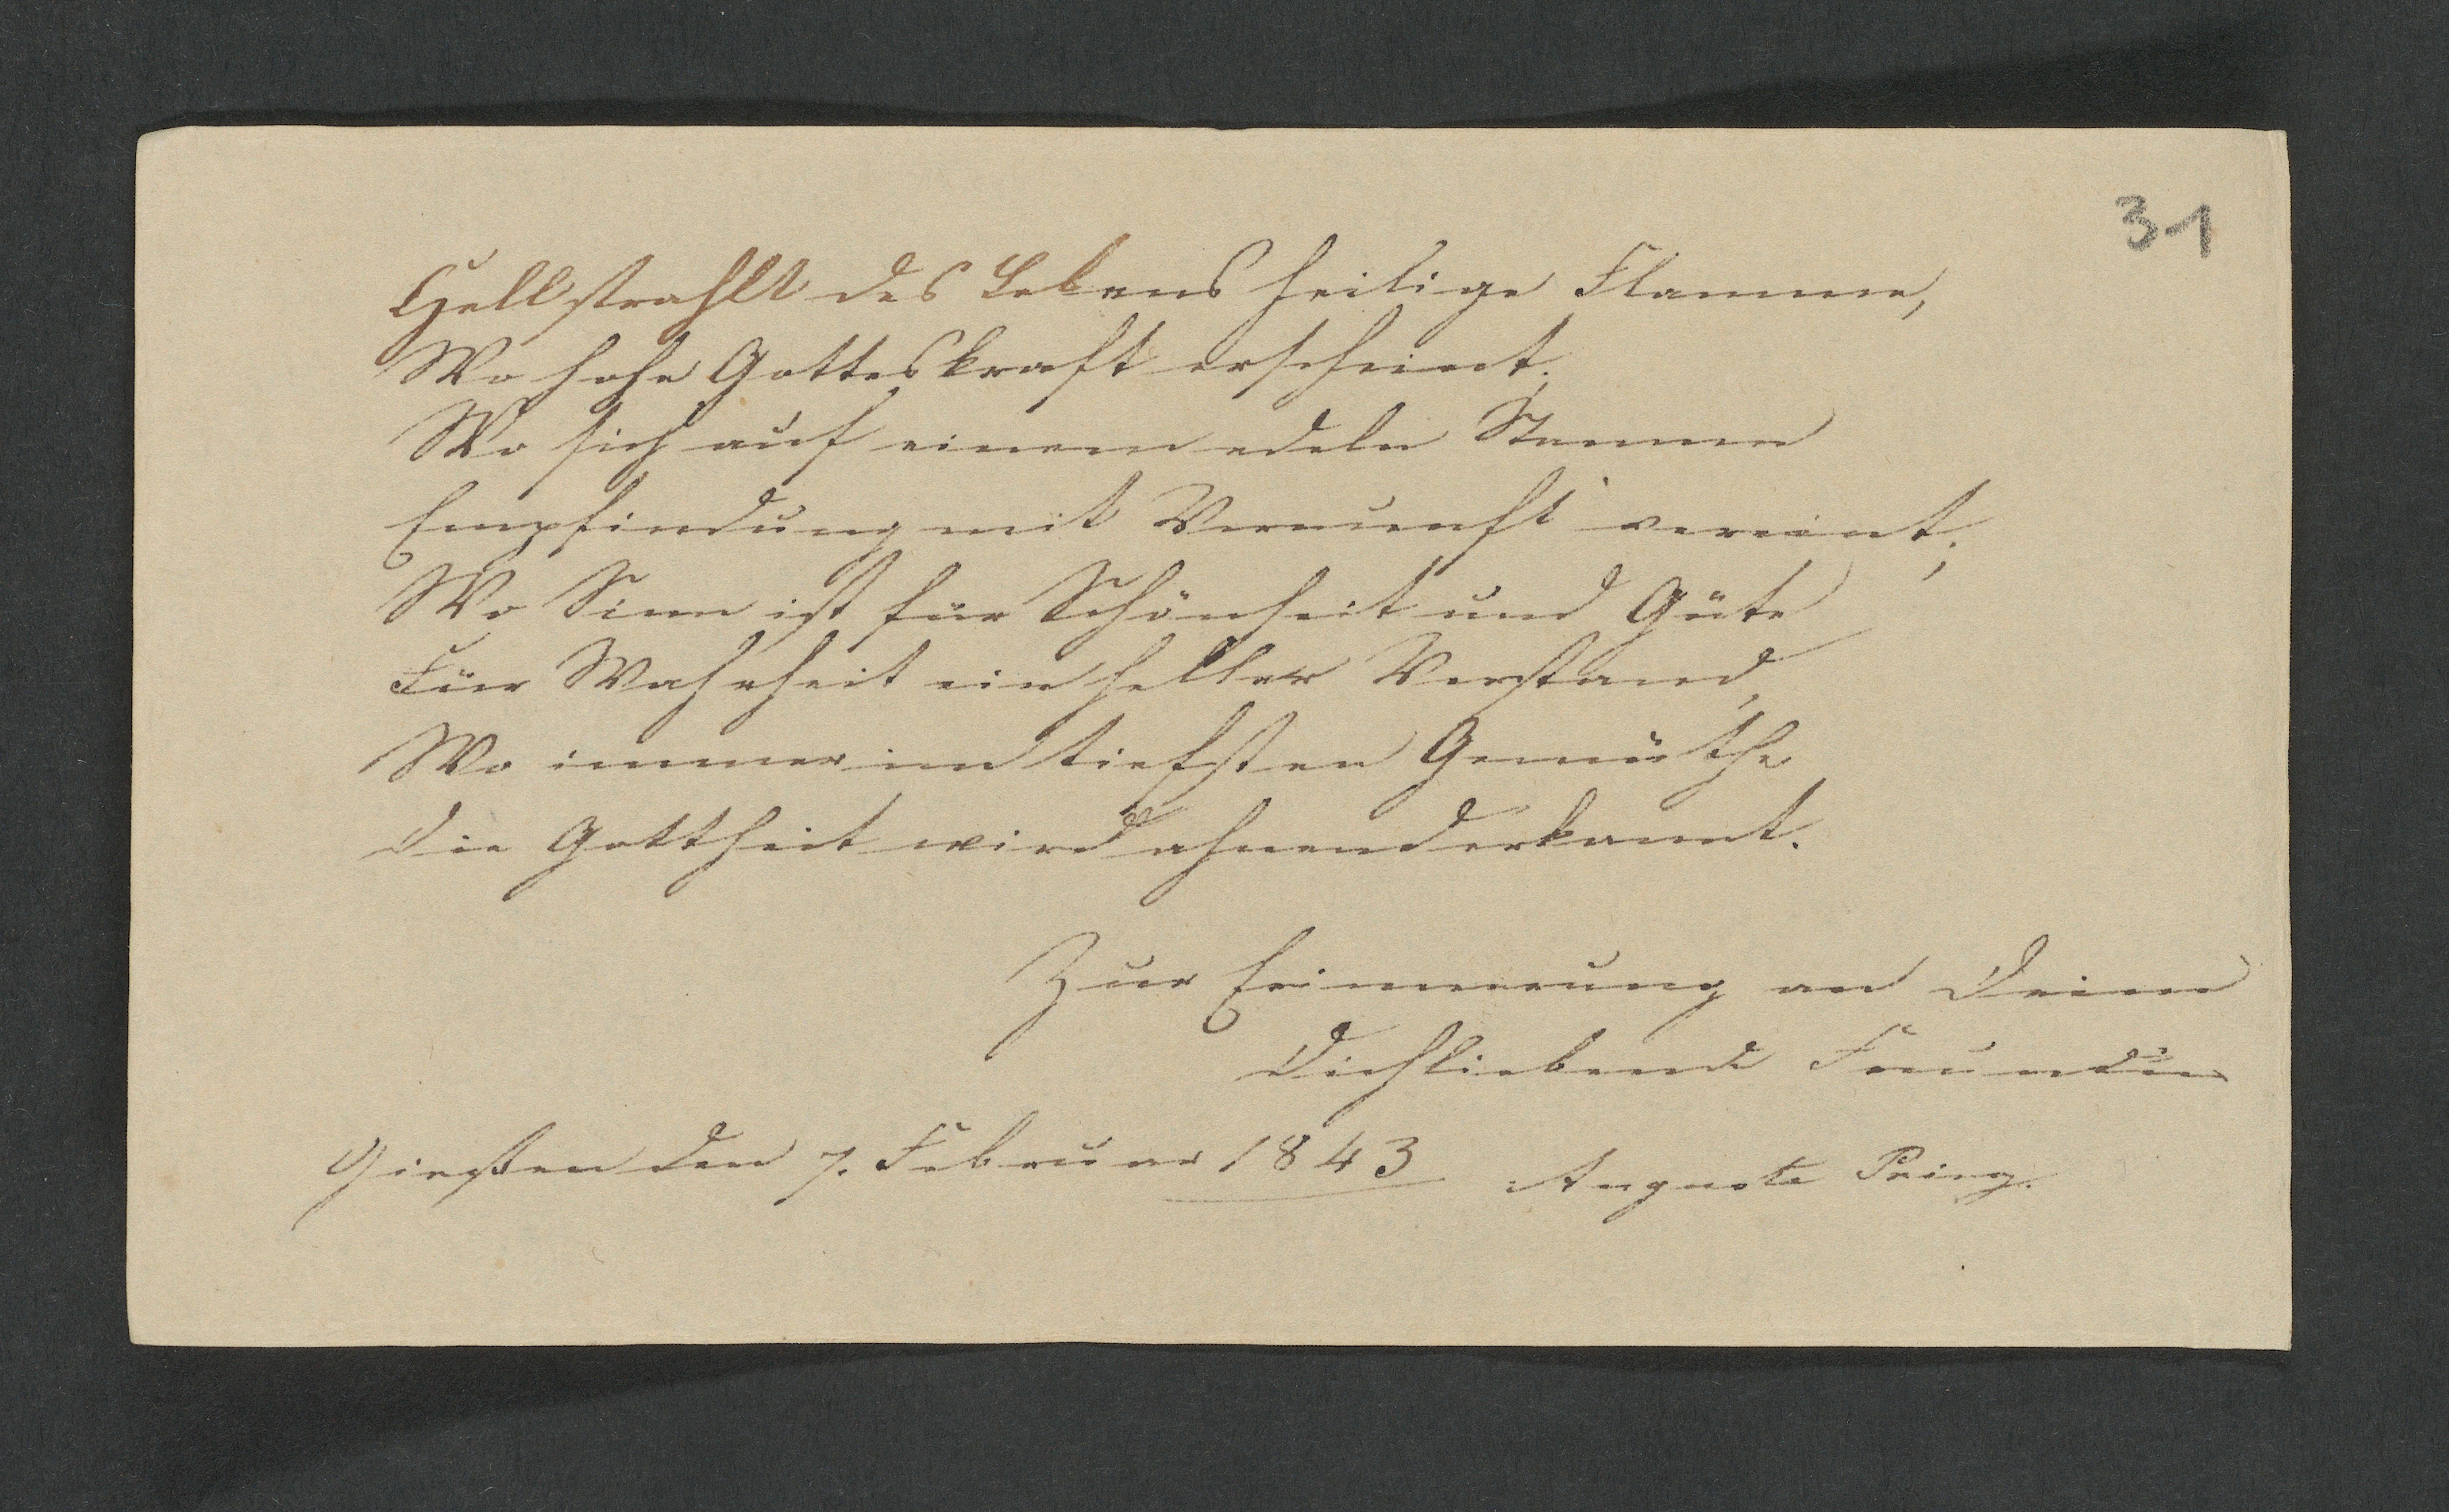 31
Hell strahlt des Lebens heilige Flamme,
Wo hohe Gotteskraft erscheint;
Wo sich auf einem edeln Stamme
Empfindung mit Vernunft vereint;
Wo Sinn ist für Schönheit und Güte
Für Wahrheit ein heller Verstand,
Wo immer im tiefsten Gemüthe
Die Gottheit wird ahnend erkannt.
Zur Erinnerung an Deine
Dichliebende Freundin
Gießen den 7. Februar 1843 Auguste